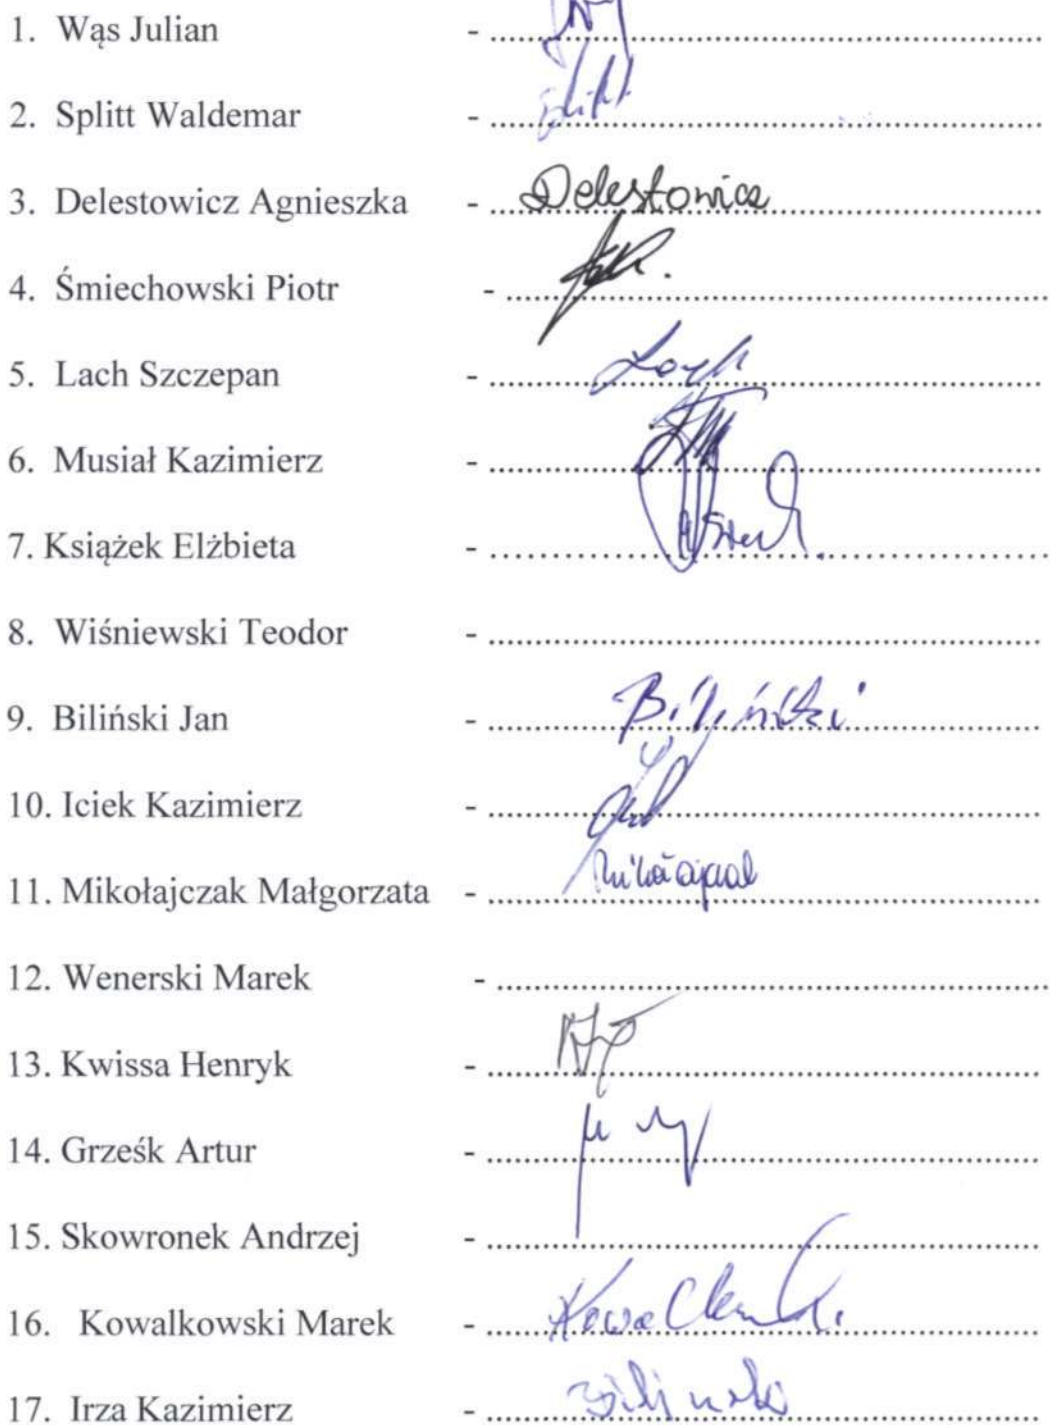 1. Wąs Julian - ..........
2. Splitt Waldemar - .......... Splitt
3. Delestowicz Agnieszka - .......... Delestowicz
4. Śmiechowski Piotr - ..........
5. Lach Szczepan - .......... Lach
6. Musiał Kazimierz - ..........
7. Książek Elżbieta - ..........
8. Wiśniewski Teodor - ..........
9. Biliński Jan - .......... Biliński
10. Iciek Kazimierz - ..........
11. Mikołajczak Małgorzata - .......... 
12. Wenerski Marek - ..........
13. Kwissa Henryk - ..........
14. Grześk Artur - ..........
15. Skowronek Andrzej - ..........
16. Kowalkowski Marek - ..........
17. Irza Kazimierz - ..........